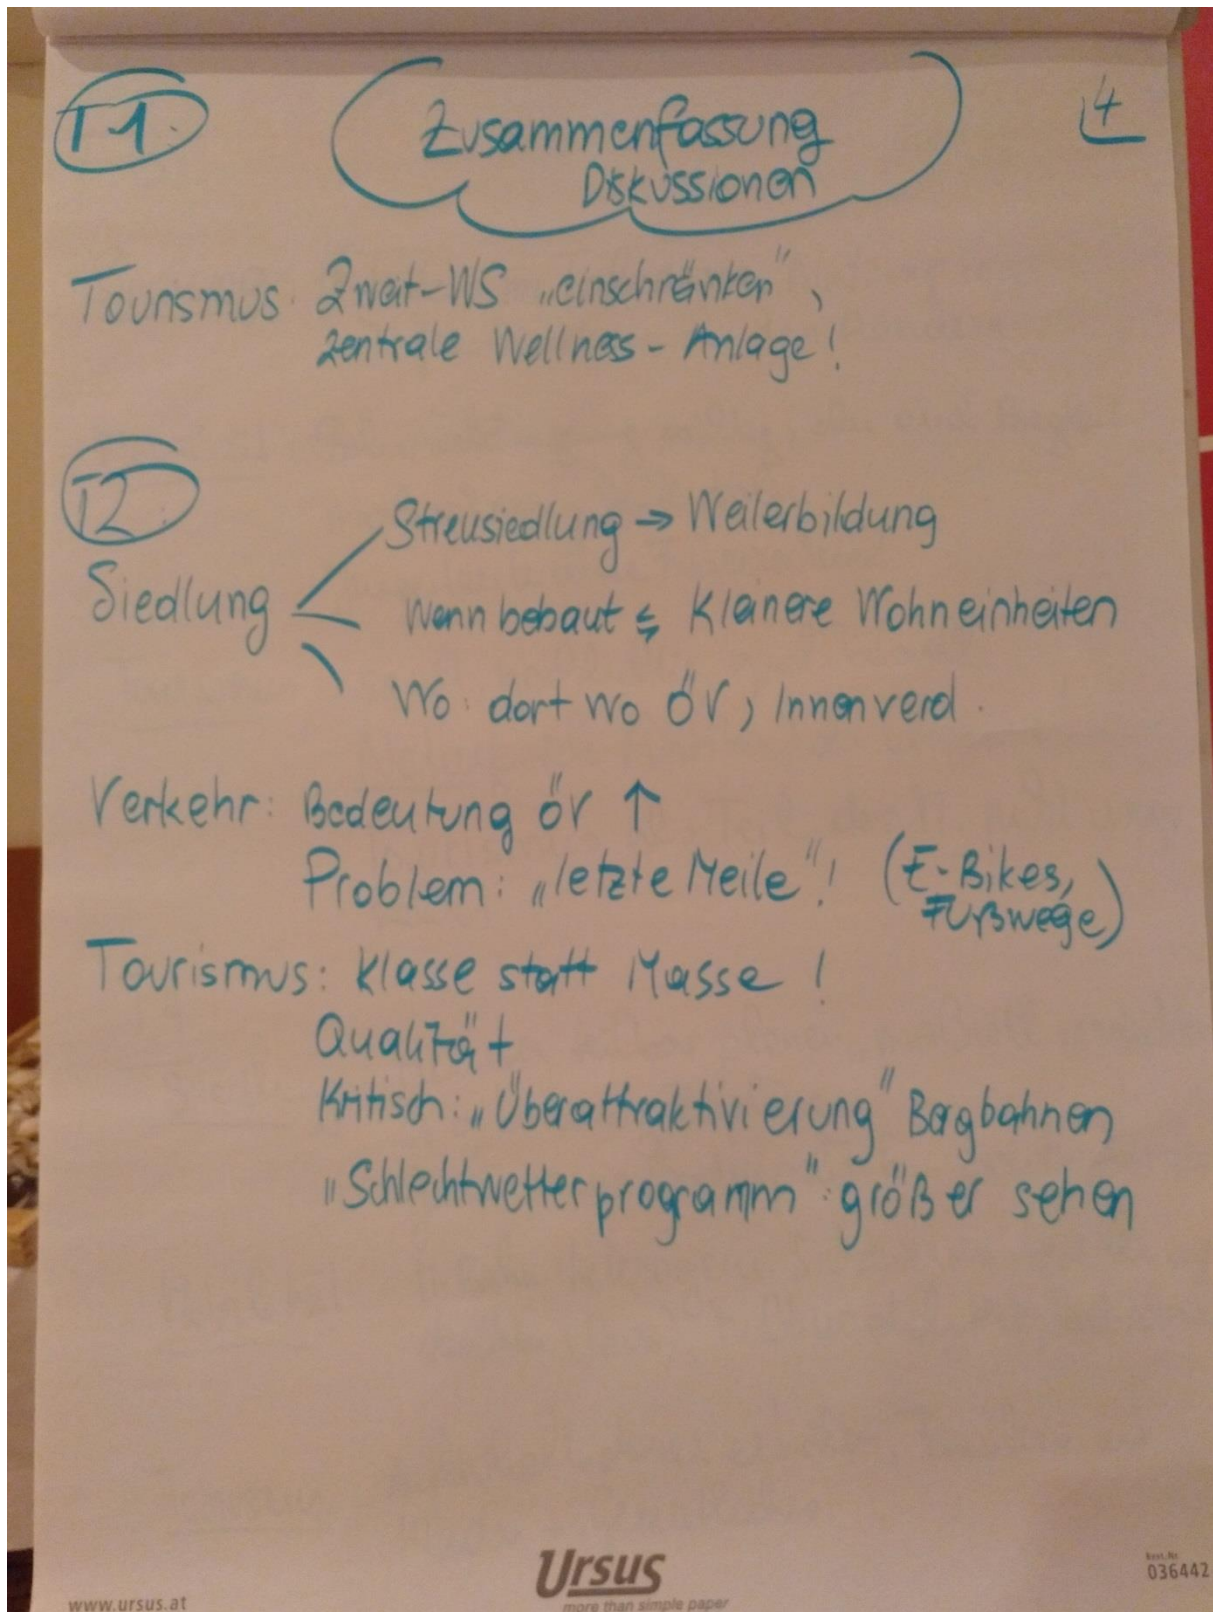 T1.
Zusammenfassung
Diskussionen
4
Tourismus: Zweit-WS „einschränken",
zentrale Wellness-Anlage!
T2.
Siedlung
Streusiedlung → Weilerbildung
Wenn bebaut ↯ Kleinere Wohneinheiten
Wo: dort wo ÖV, Innenverd.
Verkehr: Bedeutung ÖV ↑
Problem: „letzte Meile"! (E-Bikes,
Fußwege)
Tourismus: Klasse statt Masse!
Qualität
Kritisch: „Überattraktivierung" Bergbahnen
„Schlechtwetterprogramm": größer sehen
Ursus
more than simple paper
www.ursus.at
Best.Nr.
036442